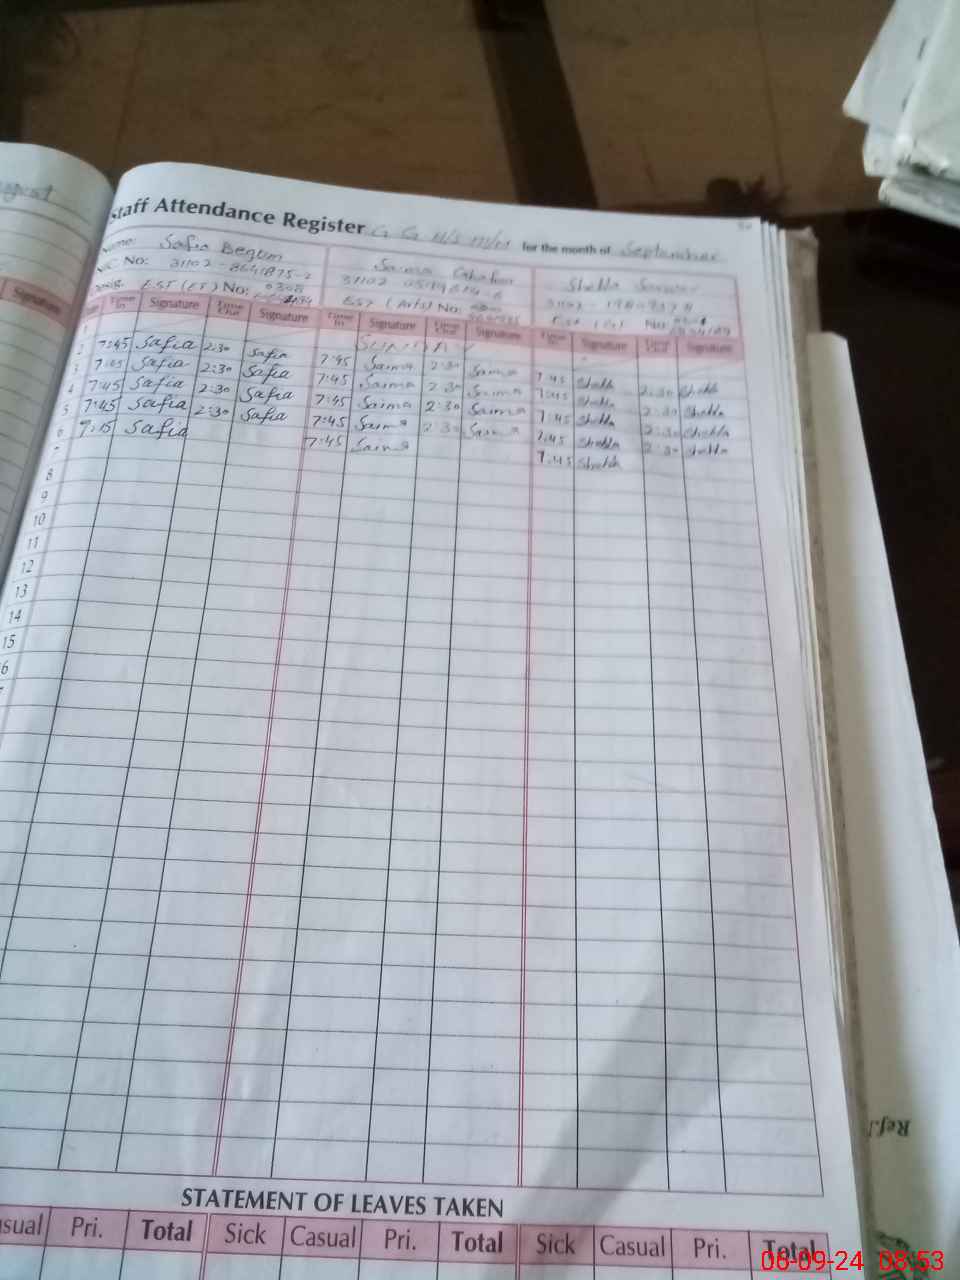 Staff Attendance Register G G H/S for the month of September
Name: Safia Begum Saima Shehla
N.I.C No: 31102-8641875-2 31102
EST (ET) No: EST (Arts) No: No:
Time In Signature Time Out Signature Time In Signature Time Out Signature Time In Signature Time Out Signature
Signature
1 SUNDAY
2 7:45 Safia 2:30 Safia 7:45 Saima 2:30 Saima 7:45 Shehla 2:30 Shehla
3 7:45 Safia 2:30 Safia 7:45 Saima 2:30 Saima 7:45 Shehla 2:30 Shehla
4 7:45 Safia 2:30 Safia 7:45 Saima 2:30 Saima 7:45 Shehla 2:30 Shehla
5 7:45 Safia 2:30 Safia 7:45 Saima 2:30 Saima 7:45 Shehla 2:30 Shehla
6 7:45 Safia 7:45 Saima 7:45 Shehla
7
8
9
10
11
12
13
14
15
6
7
STATEMENT OF LEAVES TAKEN
asual Pri. Total Sick Casual Pri. Total Sick Casual Pri. Total
Ref.
06-09-24 08:53